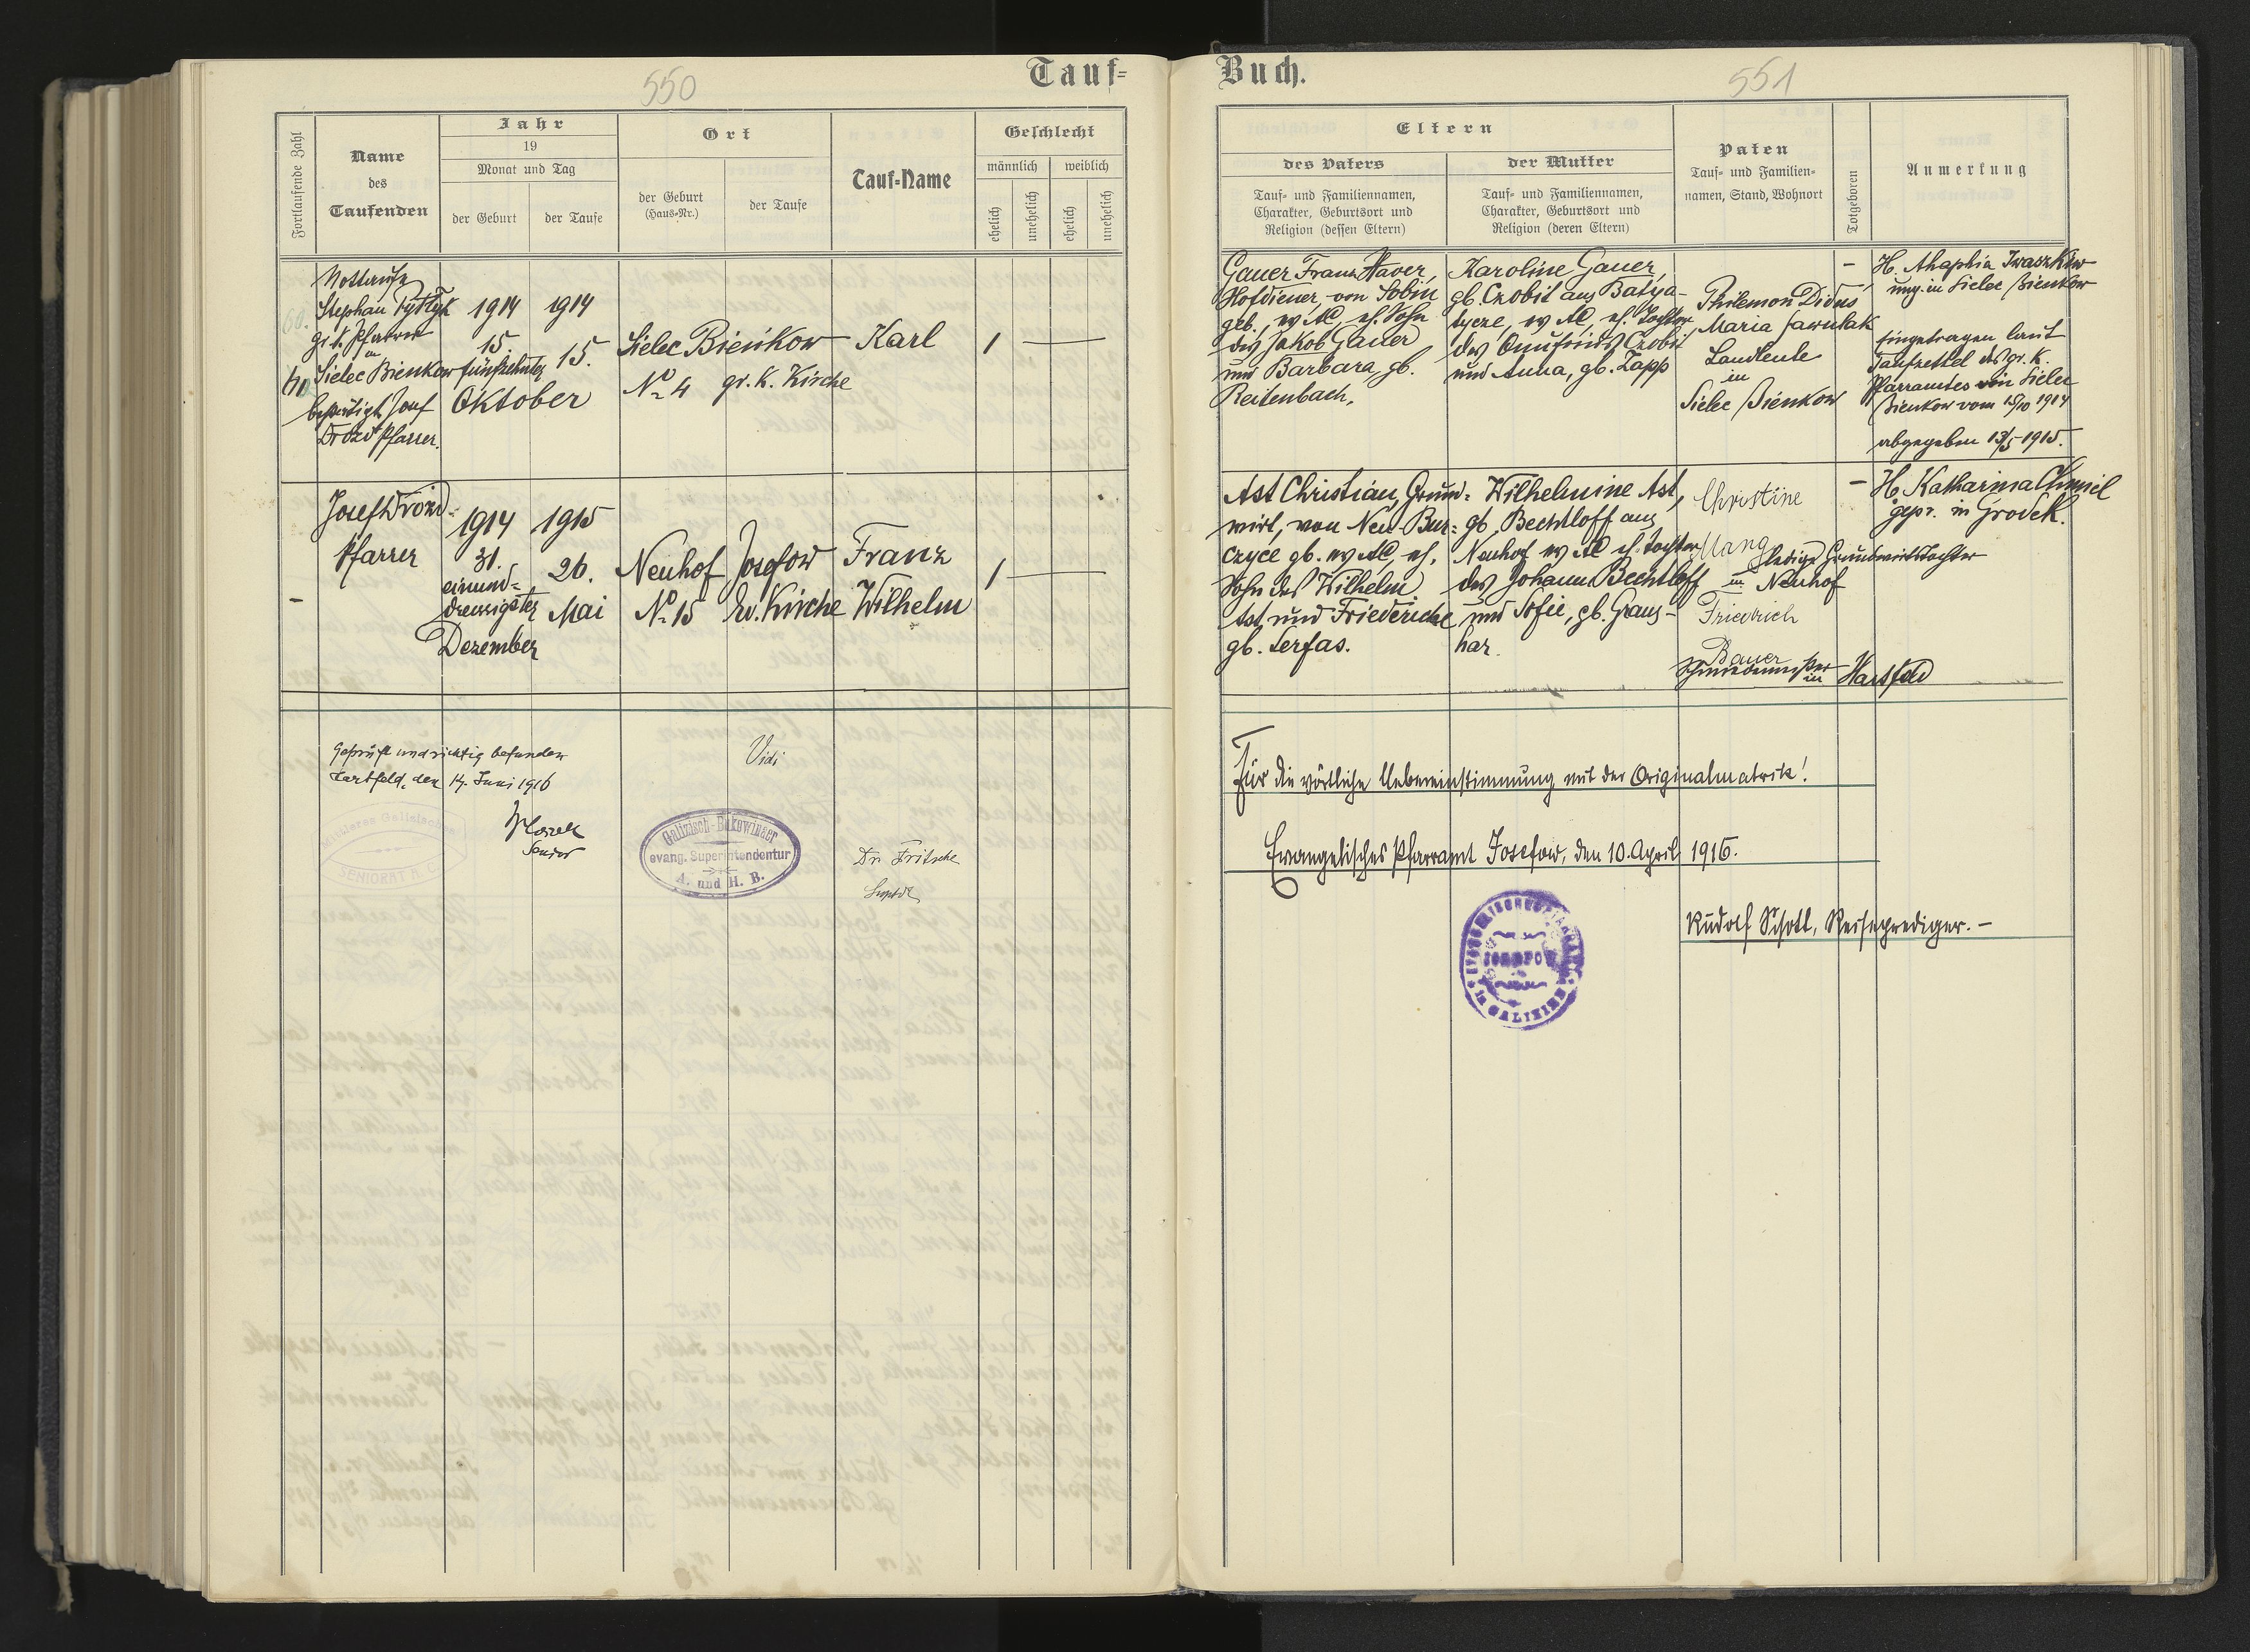 550
Tauf=
Fortlaufende Zahl
Name
des
Taufenden
Jahr
19
Monat und Tag
der Geburt
der Taufe
Ort
der Geburt
(Haus-Nr.)
der Taufe
Tauf-Name
Geschlecht
männlich
weiblich
ehelich
unehelich
ehelich
unehelich
Nottaufe
Stephan
gr. k. Pfarrer
in
Sielec Bienkow
bestätigt Josef
Drozd Pfarrer.
1914
15.
fünfzehnter
Oktober
1914
15.
Sielec Bieńkow
№ 4
gr. K. Kirche
Karl
1
Josef Drozd
Pfarrer
1914
31.
einund=
dreissigster
Dezember
1915
26.
Mai
Neuhof
№ 15
Josefow
Ev. Kirche
Franz
Wilhelm
1
Geprüft und richtig befunden
Hartfeld, den 14. Juni 1916
Senior
Mittleres Galizisches
SENIORAT A. C.
Vidi
Galizisch-Bukowinaer
evang. Superintendentur
A. und H. B.
Dr. Fritsche
Suptdt
Buch.
551
Eltern
des Vaters
Tauf- und Familiennamen,
Charakter, Geburtsort und
Religion (dessen Eltern)
der Mutter
Tauf- und Familiennamen,
Charakter, Geburtsort und
Religion (deren Eltern)
Paten
Tauf- und Familien-
namen, Stand, Wohnort
Totgeboren
Anmerkung
Gauer Franz Xaver,
Hofdiener, von Sobin
geb., ev AC, eh. Sohn
des Jakob Gauer
und Barbara, gb.
Reitenbach.
Karoline Gauer,
gb. Czobit aus Batya-
tycze, ev AC, eh. Tochter
des Onufrius Czobit
und Anna, gb. Zapp
Philemon Didus
Maria
Landleute
in
Sielec Bienkow
–
H. Ahaphia Iwaszkiw
ung. in Sielec Bienkow
Eingetragen laut
Taufzettel des gr. K.
Pfarramtes in Sielec
Bienkow vom 15/10 1914
abgegeben 13/5 1915.
Ast Christian, Grund=
wirt, von Neu-Bur=
czyce gb. ev AC, eh.
Sohn des Wilhelm
Ast und Friedericke
gb. Serfas.
Wilhelmine Ast,
gb. Bechtloff aus
Neuhof ev AC eh. Tochter
des Johann Bechtloff
und Sofie, gb. Graus-
har.
Christine
Mang
ledige Grundwirtstochter
in Neuhof
Friedrich
Bauer
Schmiedemeister
in Hartfeld
–
H. Katharina Chmiel
gepr. in Grodek.
Für die wörtliche Uebereinstimmung mit der Originalmatrik!
Evangelisches Pfarramt Josefow, den 10. April 1916.
EVANGELISCHES PFARRAMT
JOSEFOW
in GALIZIEN
Rudolf Schott, Reiseprediger. –